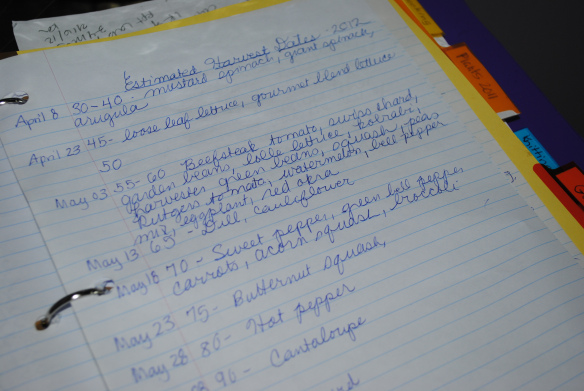 Estimated Harvest Dates - 2012
April 8 30-40 - mustard spinach, giant spinach,
arugula
April 23 45- loose leaf lettuce, gourmet blend lettuce
50
May 03 55-60 Beefsteak tomato, swiss chard,
garden beans, lolla lettuce, kolrabi,
harvester green beans, squash, peas
Rutgers tomato, watermelon, bell pepper
mix, eggplant, red okra
May 13 65 - Dill, cauliflower
May 18 70 - Sweet pepper, green bell pepper
carrots, acorn squash, broccoli
May 23 75- Butternut squash,
May 28 80- Hot pepper
90- Cantaloupe